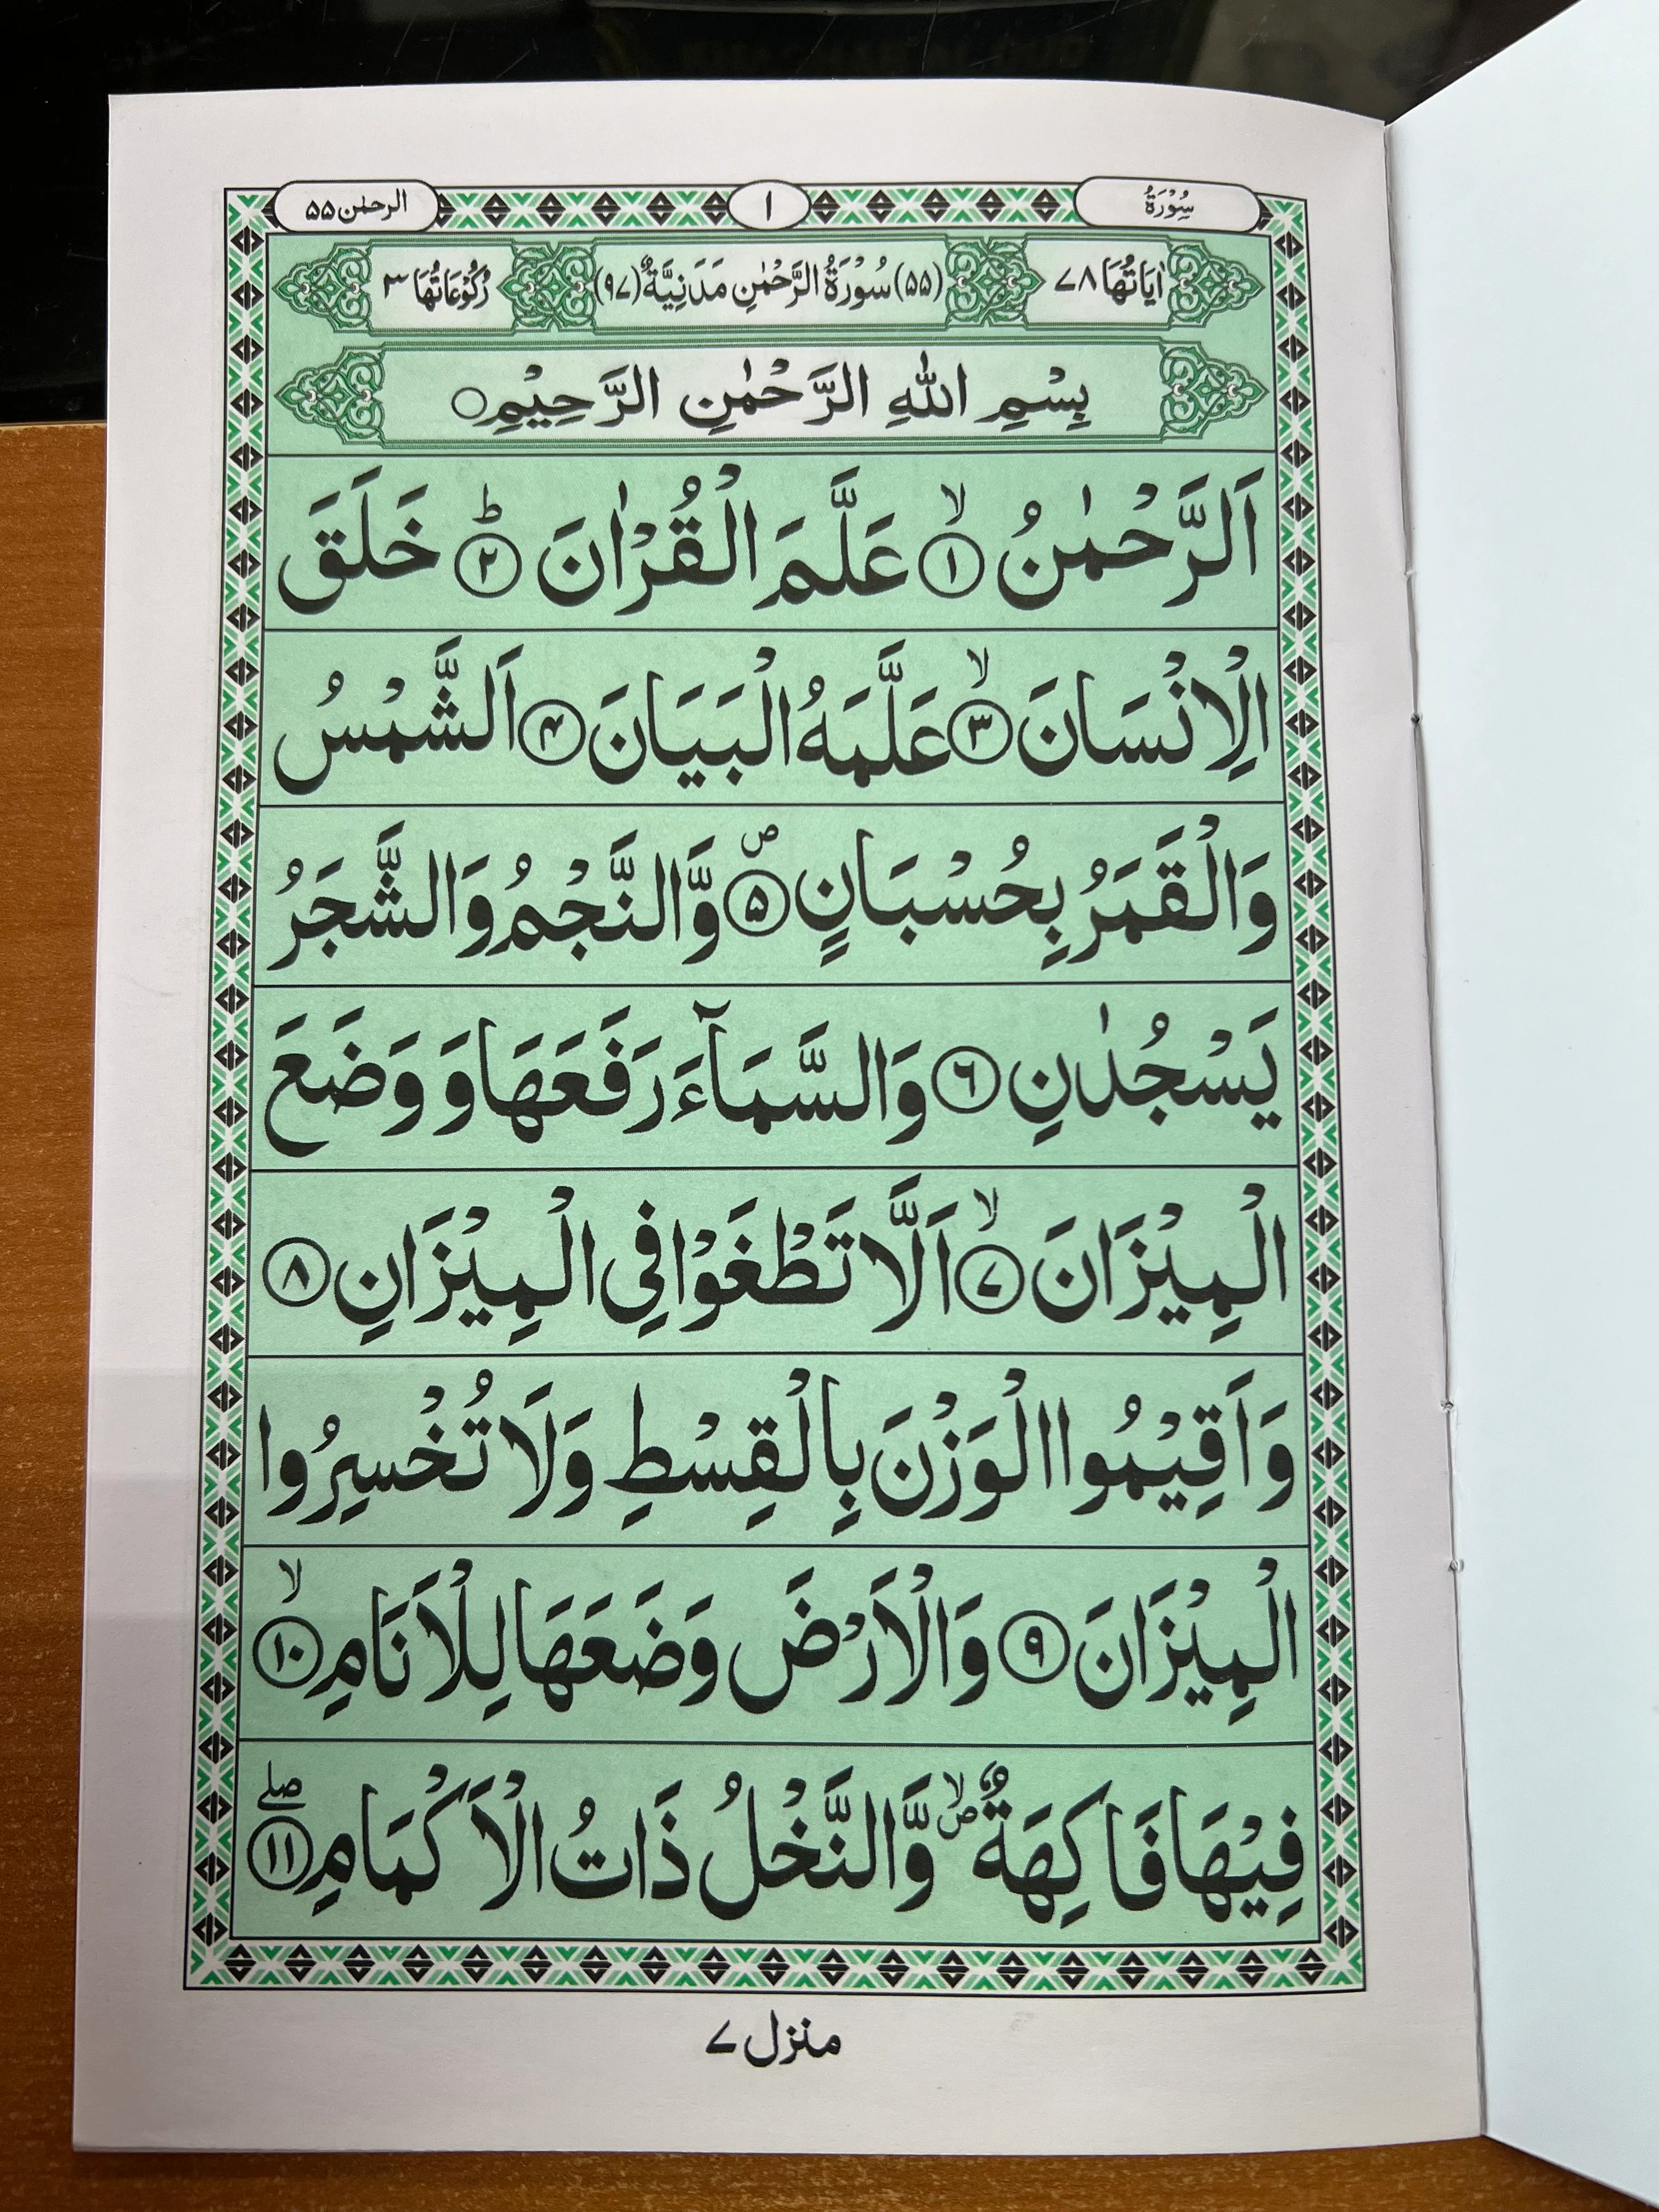 سُوْرَةُ ١ الرحمٰن ۵۵
اٰيَاتُهَا ٧٨ (۵۵) سُوْرَةُ الرَّحْمٰنِ مَدَنِيَّةٌ (٩٧) رُكُوْعَاتُهَا ٣
بِسْمِ اللّٰهِ الرَّحْمٰنِ الرَّحِيْمِ○
اَلرَّحْمٰنُ ۙ﴿١﴾ عَلَّمَ الْقُرْاٰنَ ؕ﴿٢﴾ خَلَقَ
الْاِنْسَانَ ۙ﴿٣﴾ عَلَّمَهُ الْبَيَانَ ﴿۴﴾ اَلشَّمْسُ
وَالْقَمَرُ بِحُسْبَانٍ ۪﴿۵﴾ وَّالنَّجْمُ وَالشَّجَرُ
يَسْجُدٰنِ ﴿٦﴾ وَالسَّمَآءَ رَفَعَهَا وَ وَضَعَ
الْمِيْزَانَ ۙ﴿٧﴾ اَلَّا تَطْغَوْا فِى الْمِيْزَانِ ﴿٨﴾
وَاَقِيْمُوا الْوَزْنَ بِالْقِسْطِ وَلَا تُخْسِرُوا
الْمِيْزَانَ ﴿٩﴾ وَالْاَرْضَ وَضَعَهَا لِلْاَنَامِ ۙ﴿١٠﴾
فِيْهَا فَاكِهَةٌ ۪ۙ وَّالنَّخْلُ ذَاتُ الْاَكْمَامِ ۖ﴿١١﴾
منزل ٧